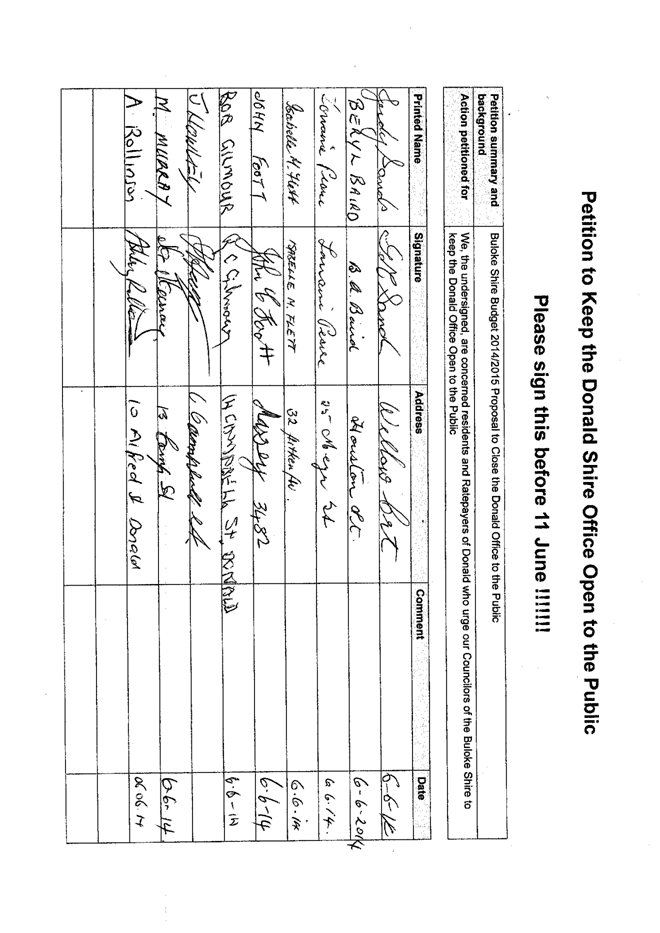 Petition to Keep the Donald Shire Office Open to the Public
Please sign this before 11 June !!!!!!!
Petition summary and background Buloke Shire Budget 2014/2015 Proposal to Close the Donald Office to the Public
Action petitioned for We, the undersigned, are concerned residents and Ratepayers of Donald who urge our Councilors of the Buloke Shire to
keep the Donald Office Open to the Public
Printed Name Signature Address Comment Date
Sands Willow Crt 6-6-14
BERYL BAIRD B A Baird Houston St. 6-6-2014
Lorraine Lorraine 6.6.14.
Isabelle M. Flett ISABELLE M. FLETT 32 Aitken Av. 6.6.14
JOHN FOOTT John C Foott Massey 3482 6.6-14
ROB GILMOUR R C Gilmour 14 CAMPBELL St, DONALD 6.6-14
J Campbell St
M. MURRAY 13 Camp St 6.6-14
A. Rollinson 10 Alfred St Donald 06.06.14